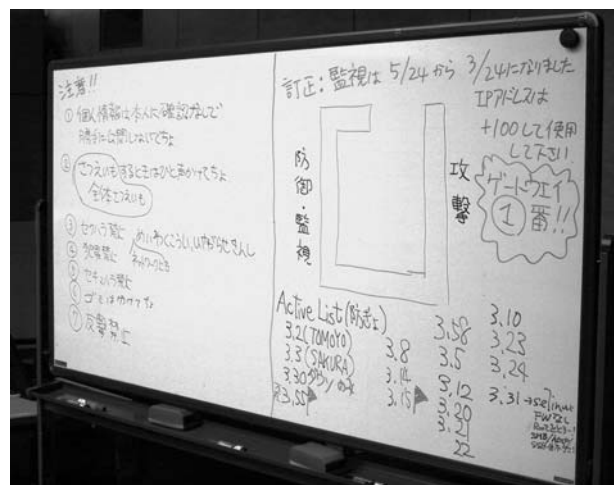 注意!!
① 個人情報は本人に確認なしで
勝手に公開しないでちょ
② さつえいもするときはひと声かけてちょ
全体さつえいも
③ セクハラ禁止
めいわくこうい、いやがらせきんし
④ 禁止
ネットワークとる
⑤ セキュハラ禁止
⑥ ゴミはわけてね
⑦ 反撃禁止
訂正:監視は 5/24 から 3/24になりました
IPアドレスは
+100して使用
して下さい
防御・監視
攻撃
ゲートウェイ
① 番!!
Active List (防ぎょ)
3.2 (TOMOYO)
3.3 (SAKURA)
3.30
3.55
3.8
3.14
3.15
3.58
3.5
3.12
3.20
3.21
22
3.10
3.23
3.24
3.31 → selinux
FWなし